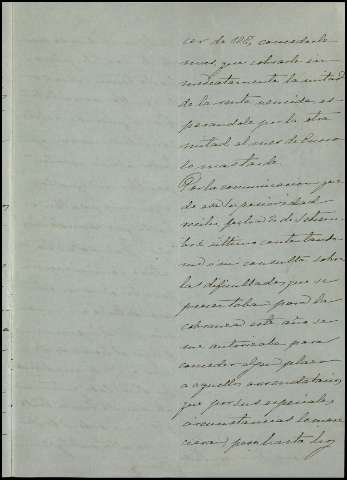 cer de 187, concederle
menes, que cobrarle in-
mediatamente la mitad
de la renta vencida, es-
perandole por la otra
mitad el mes de Enero
lo mas tarde.
Por la comunicacion que
de esa Superioridad
recibi fecha de Setiem-
bre último contestando-
me á mi consulta sobre
las dificultades que se
presentaban para la
cobranza este año se
me autorizaba para
conceder algun plazo
a aquellos arrendatarios
que por sus especiales
circunstancias lo mere-
cieran; pero hasta hoy